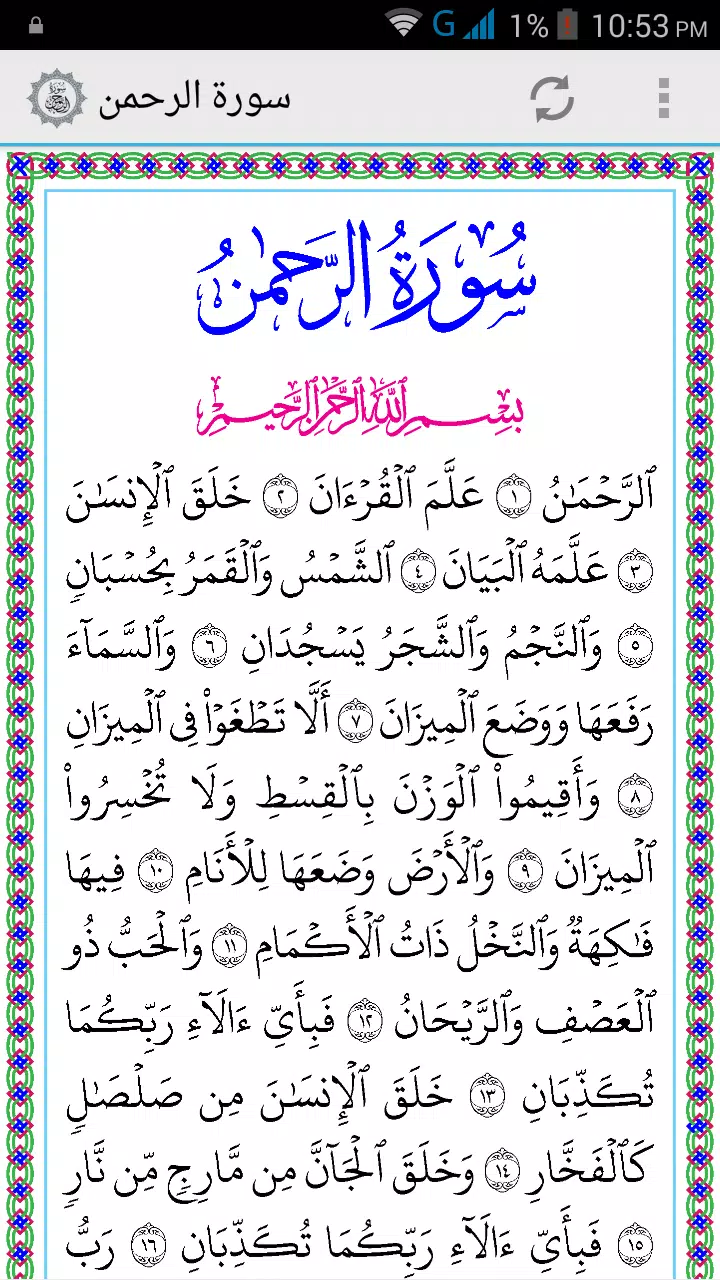 G 1% 10:53 PM
سورة الرحمن
سُورَةُ الرَّحۡمٰنُ
بِسۡمِ ٱللَّهِ ٱلرَّحۡمَٰنِ ٱلرَّحِيمِ
ٱلرَّحۡمَٰنُ ١ عَلَّمَ ٱلۡقُرۡءَانَ ٢ خَلَقَ ٱلۡإِنسَٰنَ
٣ عَلَّمَهُ ٱلۡبَيَانَ ٤ ٱلشَّمۡسُ وَٱلۡقَمَرُ بِحُسۡبَانٖ
٥ وَٱلنَّجۡمُ وَٱلشَّجَرُ يَسۡجُدَانِ ٦ وَٱلسَّمَآءَ
رَفَعَهَا وَوَضَعَ ٱلۡمِيزَانَ ٧ أَلَّا تَطۡغَوۡاْ فِي ٱلۡمِيزَانِ
٨ وَأَقِيمُواْ ٱلۡوَزۡنَ بِٱلۡقِسۡطِ وَلَا تُخۡسِرُواْ
ٱلۡمِيزَانَ ٩ وَٱلۡأَرۡضَ وَضَعَهَا لِلۡأَنَامِ ١٠ فِيهَا
فَٰكِهَةٞ وَٱلنَّخۡلُ ذَاتُ ٱلۡأَكۡمَامِ ١١ وَٱلۡحَبُّ ذُو
ٱلۡعَصۡفِ وَٱلرَّيۡحَانُ ١٢ فَبِأَيِّ ءَالَآءِ رَبِّكُمَا
تُكَذِّبَانِ ١٣ خَلَقَ ٱلۡإِنسَٰنَ مِن صَلۡصَٰلٖ
كَٱلۡفَخَّارِ ١٤ وَخَلَقَ ٱلۡجَآنَّ مِن مَّارِجٖ مِّن نَّارٖ
١٥ فَبِأَيِّ ءَالَآءِ رَبِّكُمَا تُكَذِّبَانِ ١٦ رَبُّ